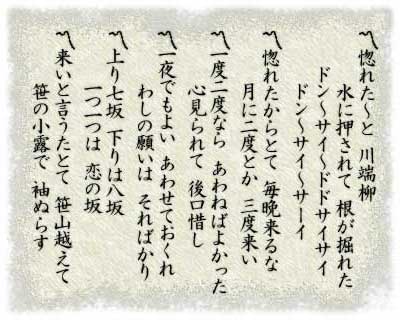 〽惚れた〜と 川端柳
水に押されて 根が掘れた
ドン〜サイ〜ドドサイサイ
ドン〜サイ〜サーイ
〽惚れたからとて 毎晩来るな
月に二度とか 三度来い
〽一度二度なら あわねばよかった
心見られて 後口惜し
〽一夜でもよい あわせておくれ
わしの願いは そればかり
〽上り七坂 下りは八坂
一つ二つは 恋の坂
〽来いと言うたとて 笹山越えて
笹の小露で 袖ぬらす